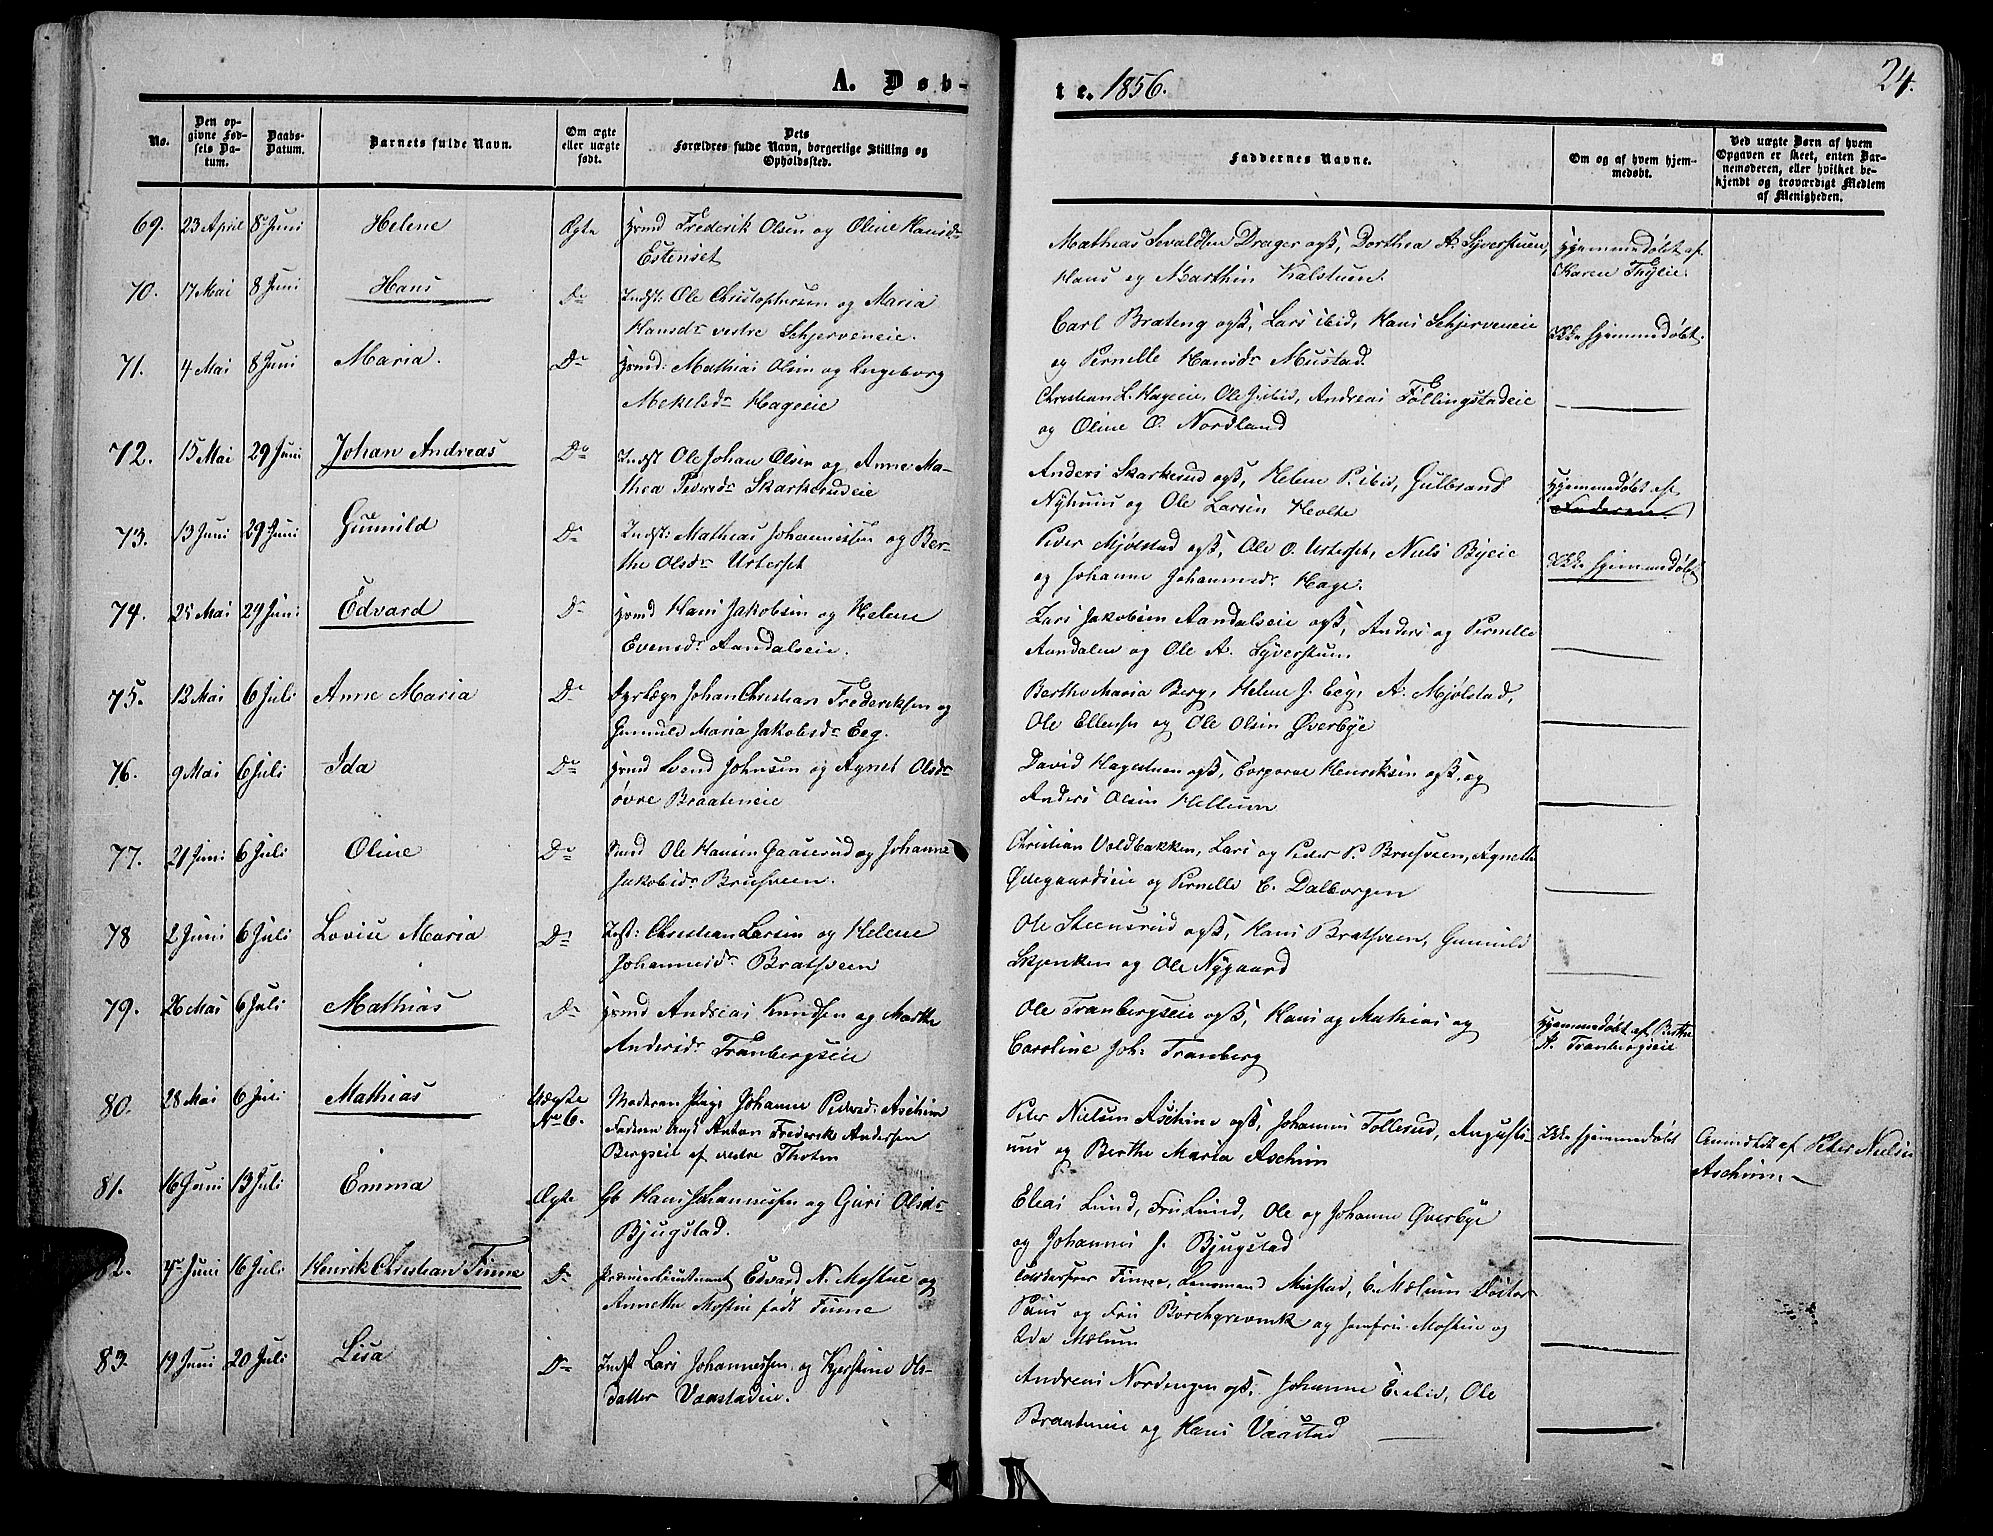 A. Døb-
te. 1856.
24.
No.
Den opgivne Fødsels Datum.
Daabs-Datum.
Barnets fulde Navn.
Om ægte eller uægte født.
Dets Forældres fulde Navn, borgerlige Stilling og Opholdssted.
Faddernes Navne.
Om og af hvem hjemmedøbt.
Ved uægte Børn af hvem Opgaven er skeet, enten Barnemoderen, eller hvilket bekjendt og troværdigt Medlem af Menigheden.
69. 23 April 8 Juni Helene Ægte Hmd Frederik Olsen og Oline Hansdr
Estenset
Mathias Sevaldsen Drager ogß, Dorthea A. Syverstuen,
Hans og Marthin Kalstuen.
Hjemmedøbt af
Karen Thylie.
70. 17 Mai 8 Juni Hans Do Indst: Ole Christophersen og Maria
Hansdr vestre Schjerveneie.
Carl Brateng ogß, Lars ibid, Hans Schjerveneie
og Pernelle Hansdr Mustad.
Ikke hjemmedøbt.
71. 4 Mai 8 Juni Maria. Do Hmd: Mathias Olsen og Ingeborg
Mekelsdr Hageeie
Christian L. Hageeie, Ole J. ibid, Andreas Føllingstadeie
og Oline O. Nordland
72. 15 Mai 29 Juni Johan Andreas Do Indst Ole Johan Olsen og Anne Ma-
thea Pedersdr Skarkerudeie
Anders Skarkerud ogß, Helene P. ibid, Gulbrand
Nyhuus og Ole Larsen Holte
Hjemmedøbt af
73. 13 Juni 29 Juni Gunnild Do Indst: Mathias Johannessen og Ber-
the Olsdr Urterset
Peder Mjølstad ogß, Ole O. Urterset, Niels Byeie
og Johanne Johannesdr Hage.
Ikke hjemmedøbt
74. 25 Mai 29 Juni Edvard Do Hmd Hans Jakobsen og Helene
Evensdr Aandalseie.
Lars Jakobsen Aandalseie ogß, Anders og Pernelle
Aandalen og Ole A. Syverstuen.
75. 12 Mai 6 Juli Anne Maria Do Dyrlæge Johan Christian Frederiksen og
Gunnild Maria Jakobsdr Eeg.
Berthe Maria Berg, Helene J. Eeg, A. Mjølstad,
Ole Ellenses og Ole Olsen Øverbye
76. 9 Mai 6 Juli Ida Do Hmd Svend Johnsen og Agnet Olsdr
øvre Braateneie
David Hagestuen ogß, Corporal Henriksen ogß, og
Anders Olsen Hellum
77. 21 Juni 6 Juli Oline Do Smd Ole Hansen Gaaserud og Johanne
Jakobsdr Brusveen.
Christian Voldbakken, Lars og Peder P. Brusveen, Agnethe
Ødegaardseie og Pernelle C. Dalborgen
78 2 Juni 6 Juli Lovise Maria Do Inst: Christian Larsen og Helene
Johannesdr Bratsveen
Ole Steensrud ogß, Hans Bratsveen, Gunnild
Skjenken og Ole Nygaard
79. 26 Mai 6 Juli Mathias Do Hmd Andreas Knudsen og Marthe
Andersdr Tranbergseie
Ole Tranbergseie ogß, Hans og Mathias og
Caroline Joh: Tranberg
Hjemmedøbt af Berthe
A. Tranbergseie
80. 28 Mai 6 Juli Mathias Uægte
No 6. Moderen Pige Johanne Pedersd: Aschim
Faderen Ungk Anton Frederik Andersen
Bergseie af vestre Thoten
Peter Nielsen Aschim ogß, Johannes Tollerud, Augusti-
nus og Berthe Maria Aschim
Ikke hjemmedøbt
Anmeldt af Peter Nielsen
Aschim.
81. 16 Juni 13 Juli Emma Ægte Gb Hans Johannessen og Guri Olsdr
Bjugstad.
Eleas Lund, Fru Lund, Ole og Johanne Øverbye
og Johannes J. Bjugstad
82. 4 Juni 16 Juli Henrik Christian Finne Do Premierlieutenant Edvard N. Mostue og
Annette Mostue født Finne
Finne, Lensmand Mustad, C. Mælum Doctor
Paus og Fru Borchgrevink og Jomfru Mostue og
Ida Mælum
83. 19 Juni 20 Juli Lisa Do Indst Lars Johannessen og Kjerstine Ols-
datter Vaastadeie.
Andreas Nordengen ogß, Johanne E. ibid, Ole
Braateneie og Hans Vaastad